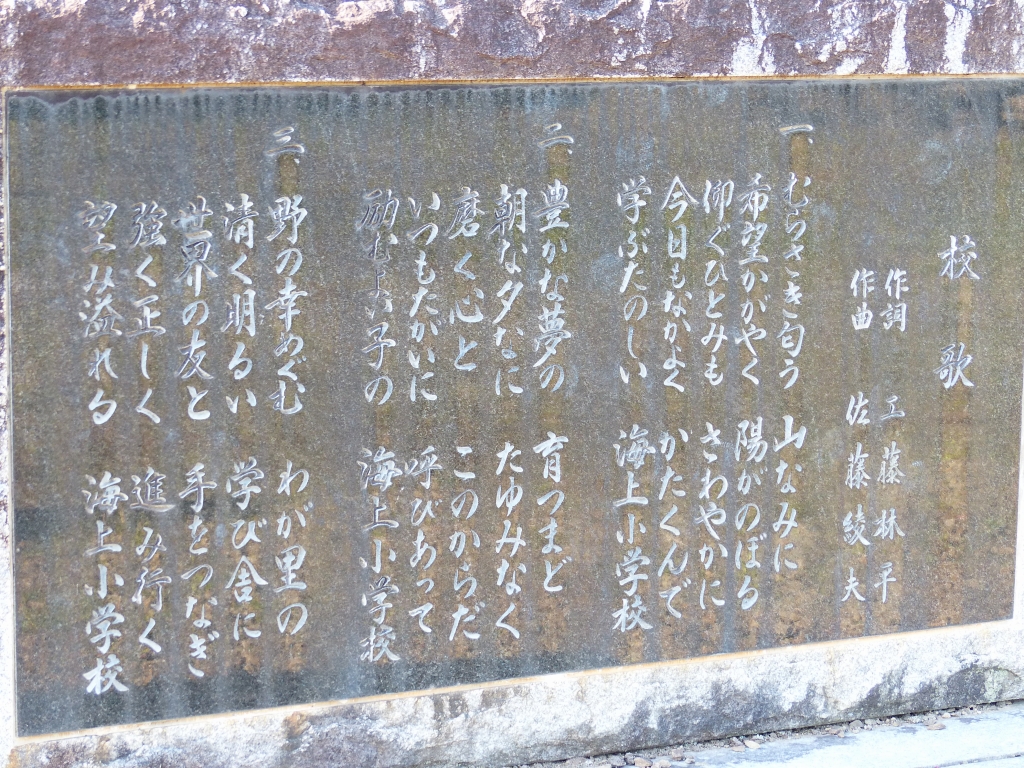 校歌
作詞 工藤林平
作曲 佐藤綾夫
一、むらさき匂う 山なみに
希望かがやく 陽がのぼる
仰ぐひとみも さわやかに
今日もなかよく かたくんで
学ぶたのしい 海上小学校
二、豊かな夢の 育つまど
朝な夕なに たゆみなく
磨く心と このからだ
いつもたがいに 呼びあって
励むよい子の 海上小学校
三、野の幸めぐむ わが里の
清く明るい 学び舎に
世界の友と 手をつなぎ
強く正しく 進み行く
望み溢れる 海上小学校